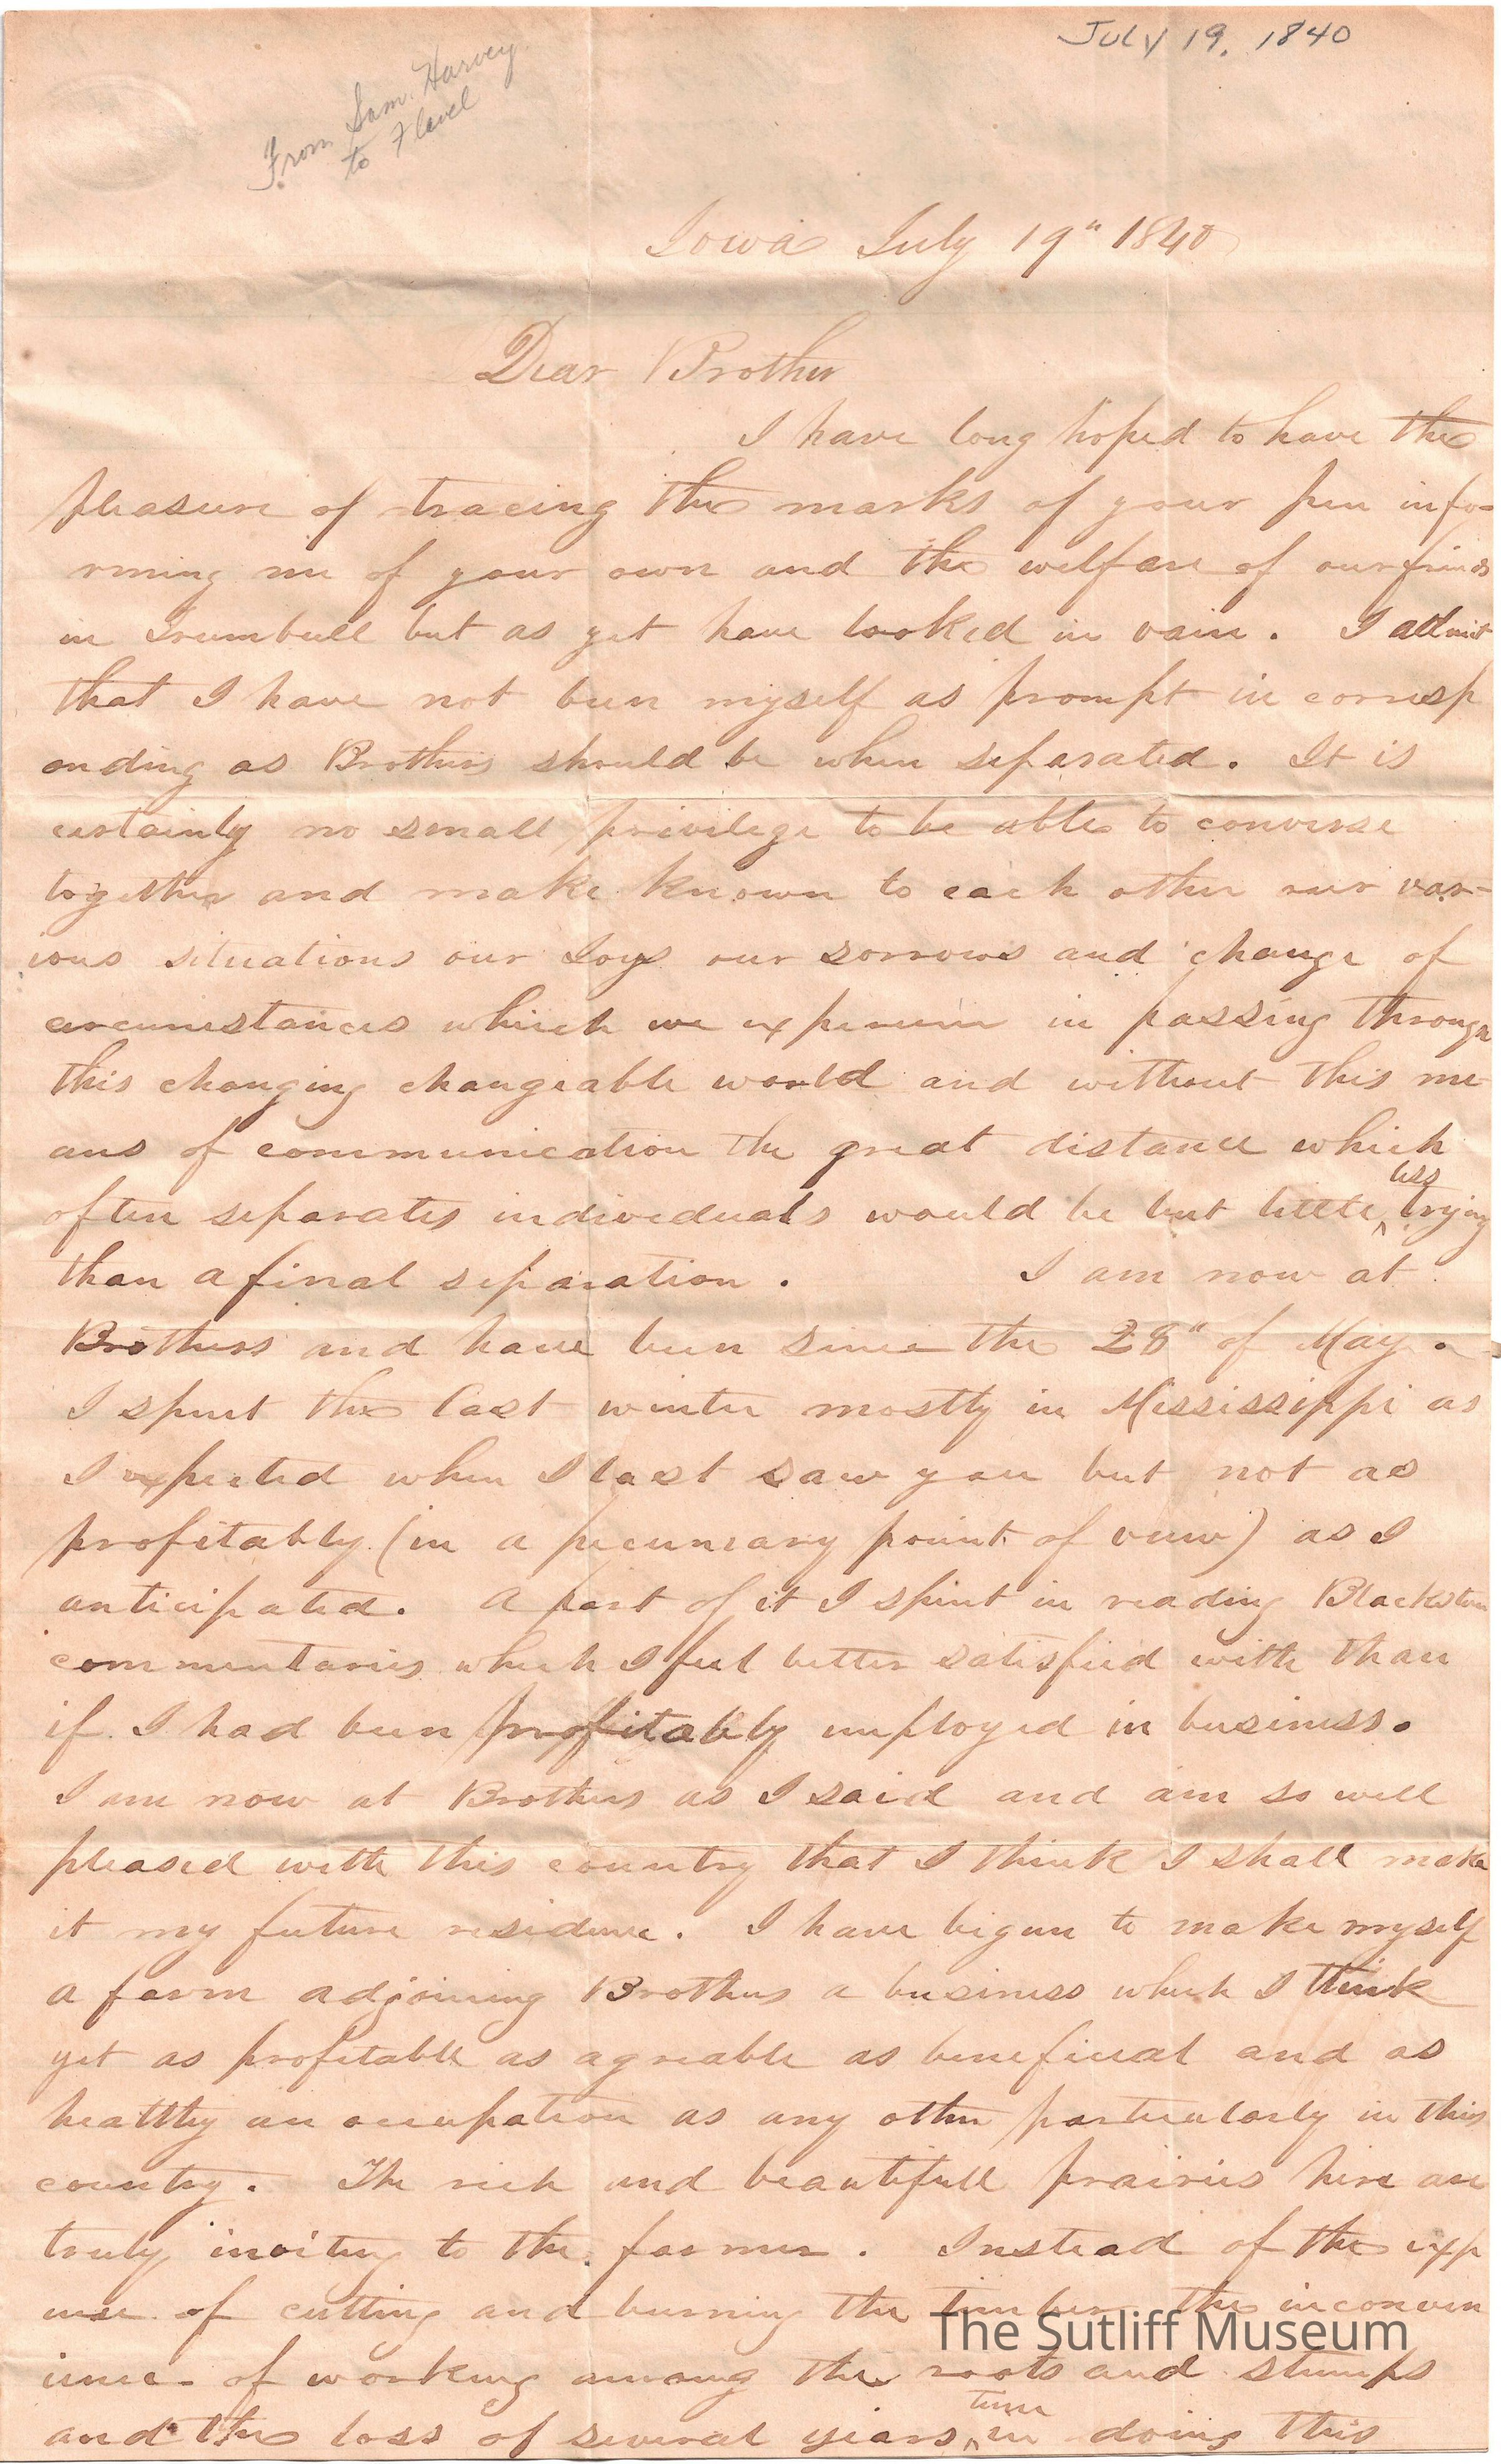 July 19, 1840
From Sam. Harvey
to Flavel
Iowa July 19" 1840
Dear Brother
I have long hoped to have the
pleasure of tracing the marks of your pen info-
rming me of your own and the welfare of our friends
in Trumbull but as yet have looked in vain. I admit
that I have not been myself as prompt in corresp
onding as Brothers should be when separated. It is
certainly no small privilege to be able to converse
together and make known to each other our var-
ious situations our Joys our sorrows and change of
circumstances which we experience in passing through
this changing changeable world and without this me
ans of communication the great distance which
often separates individuals would be but little less trying
than a final separation. I am now at
Brothers and have been since the 28" of May.
I spent the last winter mostly in Mississippi as
I expected when I last saw you but not as
profitably (in a pecuniary point of view) as I
anticipated. A part of it I spent in reading Blackstone
commentaries which I feel better satisfied with than
if I had been profitably employed in business.
I am now at Brothers as I said and am so well
pleased with this country that I think I shall make
it my future residence. I have begun to make myself
a farm adjoining Brothers a business which I think
yet as profitable as agreable as beneficial and as
healthy an occupation as any other particularly in this
country. The rich and beautifull prairies here are
truly inviting to the farmer. Instead of the exp
ense of cutting and burning the timber the inconven
ience of working among the roots and stumps
and the loss of several years time in doing this
The Sutliff Museum